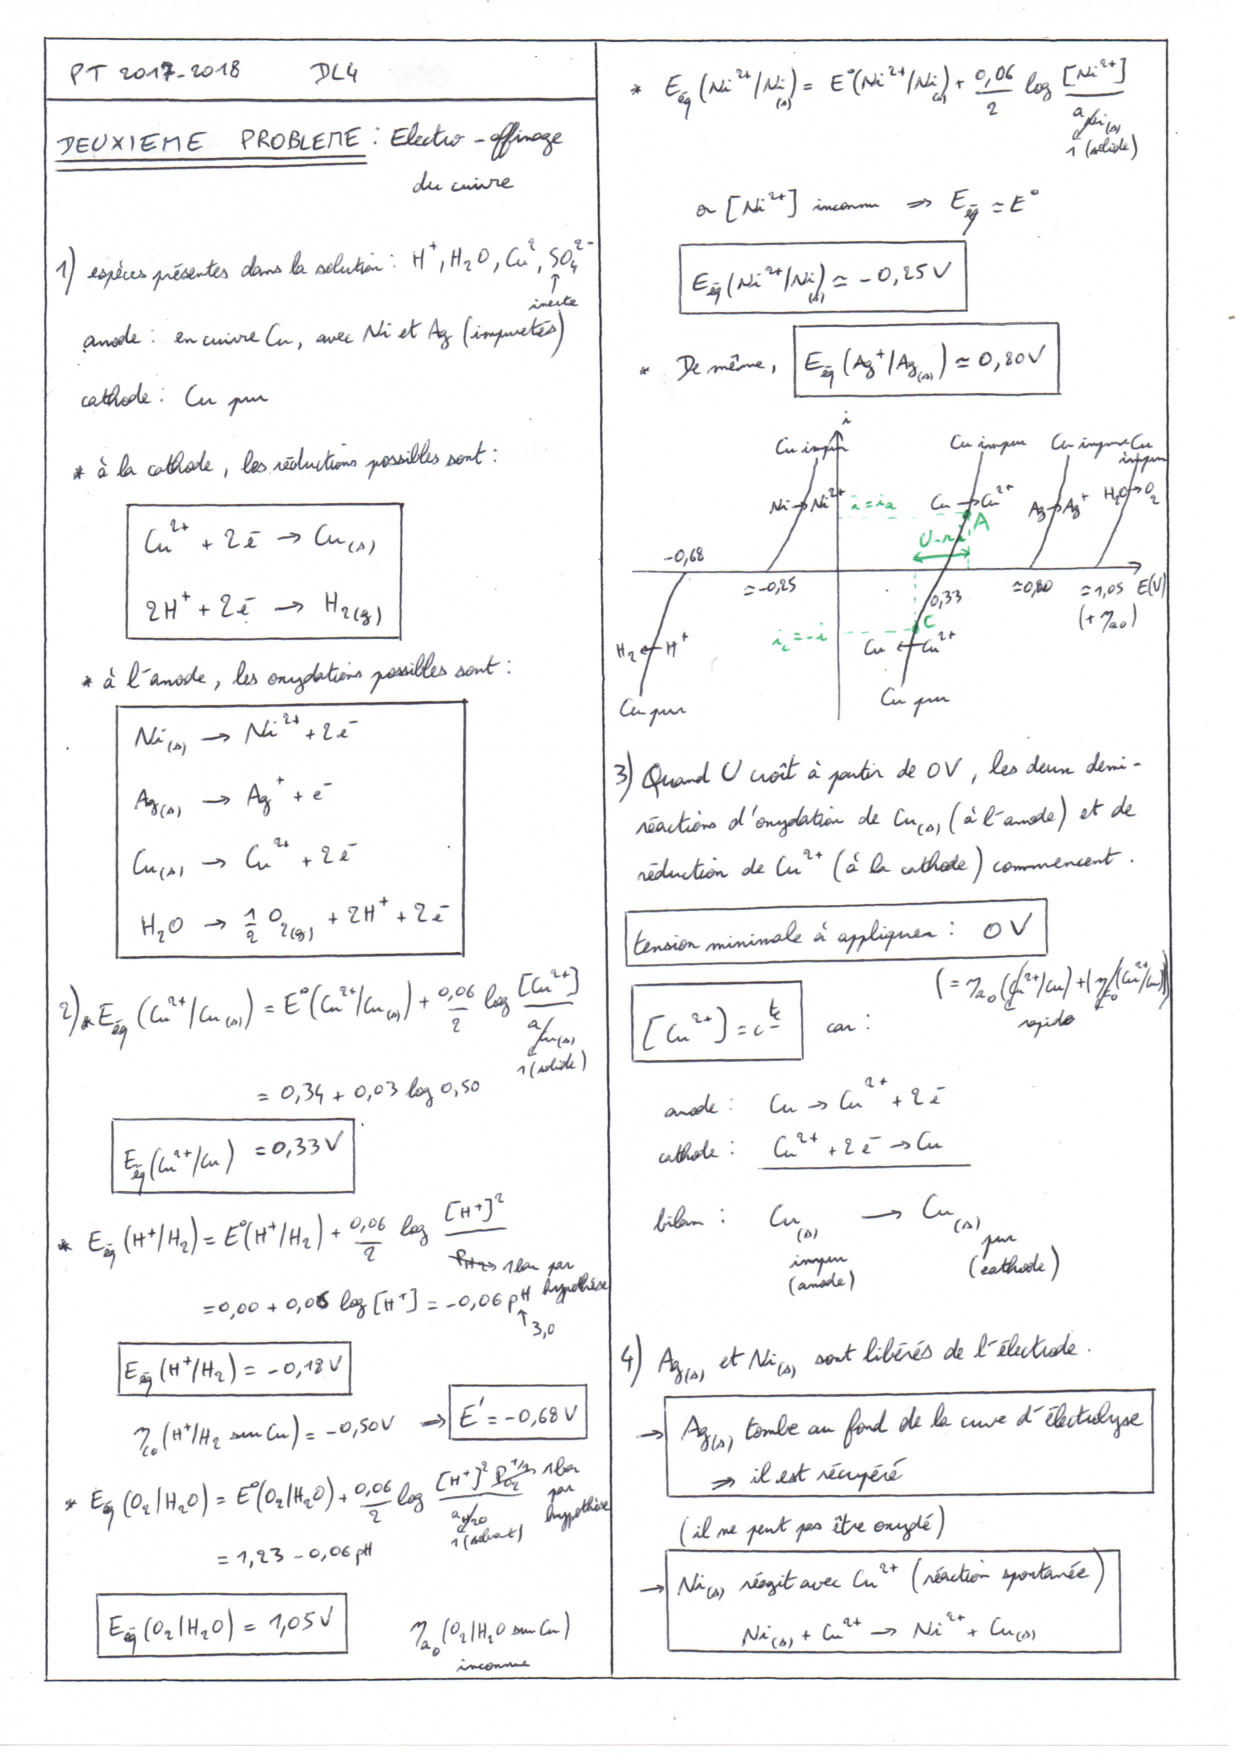 PT 2017-2018 DL4
DEUXIEME PROBLEME : Electro-affinage
du cuivre
1) espèces présentes dans la solution : H⁺, H₂O, Cu²⁺, SO₄²⁻
↑
inerte
anode : en cuivre Cu, avec Ni et Ag (impuretés)
cathode : Cu pur
* à la cathode, les réductions possibles sont :
Cu²⁺ + 2e⁻ → Cu(s)
2H⁺ + 2e⁻ → H₂(g)
* à l'anode, les oxydations possibles sont :
Ni(s) → Ni²⁺ + 2e⁻
Ag(s) → Ag⁺ + e⁻
Cu(s) → Cu²⁺ + 2e⁻
H₂O → 1/2 O₂(g) + 2H⁺ + 2e⁻
2) * Eéq (Cu²⁺/Cu(s)) = E°(Cu²⁺/Cu(s)) + 0,06/2 log [Cu²⁺]/aCu(s)
1 (solide)
= 0,34 + 0,03 log 0,50
Eéq (Cu²⁺/Cu) = 0,33 V
* Eéq (H⁺/H₂) = E°(H⁺/H₂) + 0,06/2 log [H⁺]²/PH₂ → 1 bar par
hypothèse
= 0,00 + 0,06 log [H⁺] = -0,06 pH
↑ 3,0
Eéq (H⁺/H₂) = -0,18 V
ηc₀ (H⁺/H₂ sur Cu) = -0,50 V → E' = -0,68 V
* Eéq (O₂/H₂O) = E°(O₂/H₂O) + 0,06/2 log [H⁺]² PO₂^1/2/aH₂O 1 bar
par
hypothèse
1 (solvant)
= 1,23 - 0,06 pH
Eéq (O₂/H₂O) = 1,05 V
ηa₀ (O₂/H₂O sur Cu)
inconnue
* Eéq (Ni²⁺/Ni(s)) = E°(Ni²⁺/Ni(s)) + 0,06/2 log [Ni²⁺]/aNi(s)
1 (solide)
or [Ni²⁺] inconnu ⇒ Eéq ≃ E°
Eéq (Ni²⁺/Ni(s)) ≃ -0,25 V
* De même, Eéq (Ag⁺/Ag(s)) ≃ 0,80 V
i
Cu impur Cu impur Cu impur Cu
impur
Ni → Ni²⁺ i = ia Cu → Cu²⁺ Ag → Ag⁺ H₂O → O₂
A
U-ri
-0,68
≃ -0,25 0,33 ≃ 0,80 ≃ 1,05 E(V)
(+ ηa₀)
C
ic = -i
H₂ ← H⁺ Cu ← Cu²⁺
Cu pur Cu pur
3) Quand U croît à partir de 0V, les deux demi-
réactions d'oxydation de Cu(s) (à l'anode) et de
réduction de Cu²⁺ (à la cathode) commencent.
tension minimale à appliquer : 0 V
(= ηa₀ (Cu²⁺/Cu) + |ηc₀ (Cu²⁺/Cu)|)
rapide
[Cu²⁺] = cte car :
anode : Cu → Cu²⁺ + 2e⁻
cathode : Cu²⁺ + 2e⁻ → Cu
bilan : Cu(s) → Cu(s)
impur pur
(anode) (cathode)
4) Ag(s) et Ni(s) sont libérés de l'électrode.
→ Ag(s) tombe au fond de la cuve d'électrolyse
⇒ il est récupéré
(il ne peut pas être oxydé)
→ Ni(s) réagit avec Cu²⁺ (réaction spontanée)
Ni(s) + Cu²⁺ → Ni²⁺ + Cu(s)